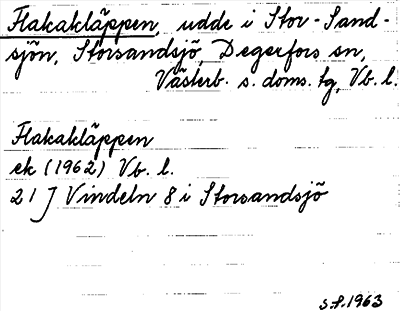 Flakakläppen, udde i Stor-Sand-
sjön, Storsandsjö, Degerfors sn,
Västerb. s. doms. tg, Vb. l.
Flakakläppen
ek (1962) Vb. l.
21 J Vindeln 8 i Storsandsjö
S.P. 1963